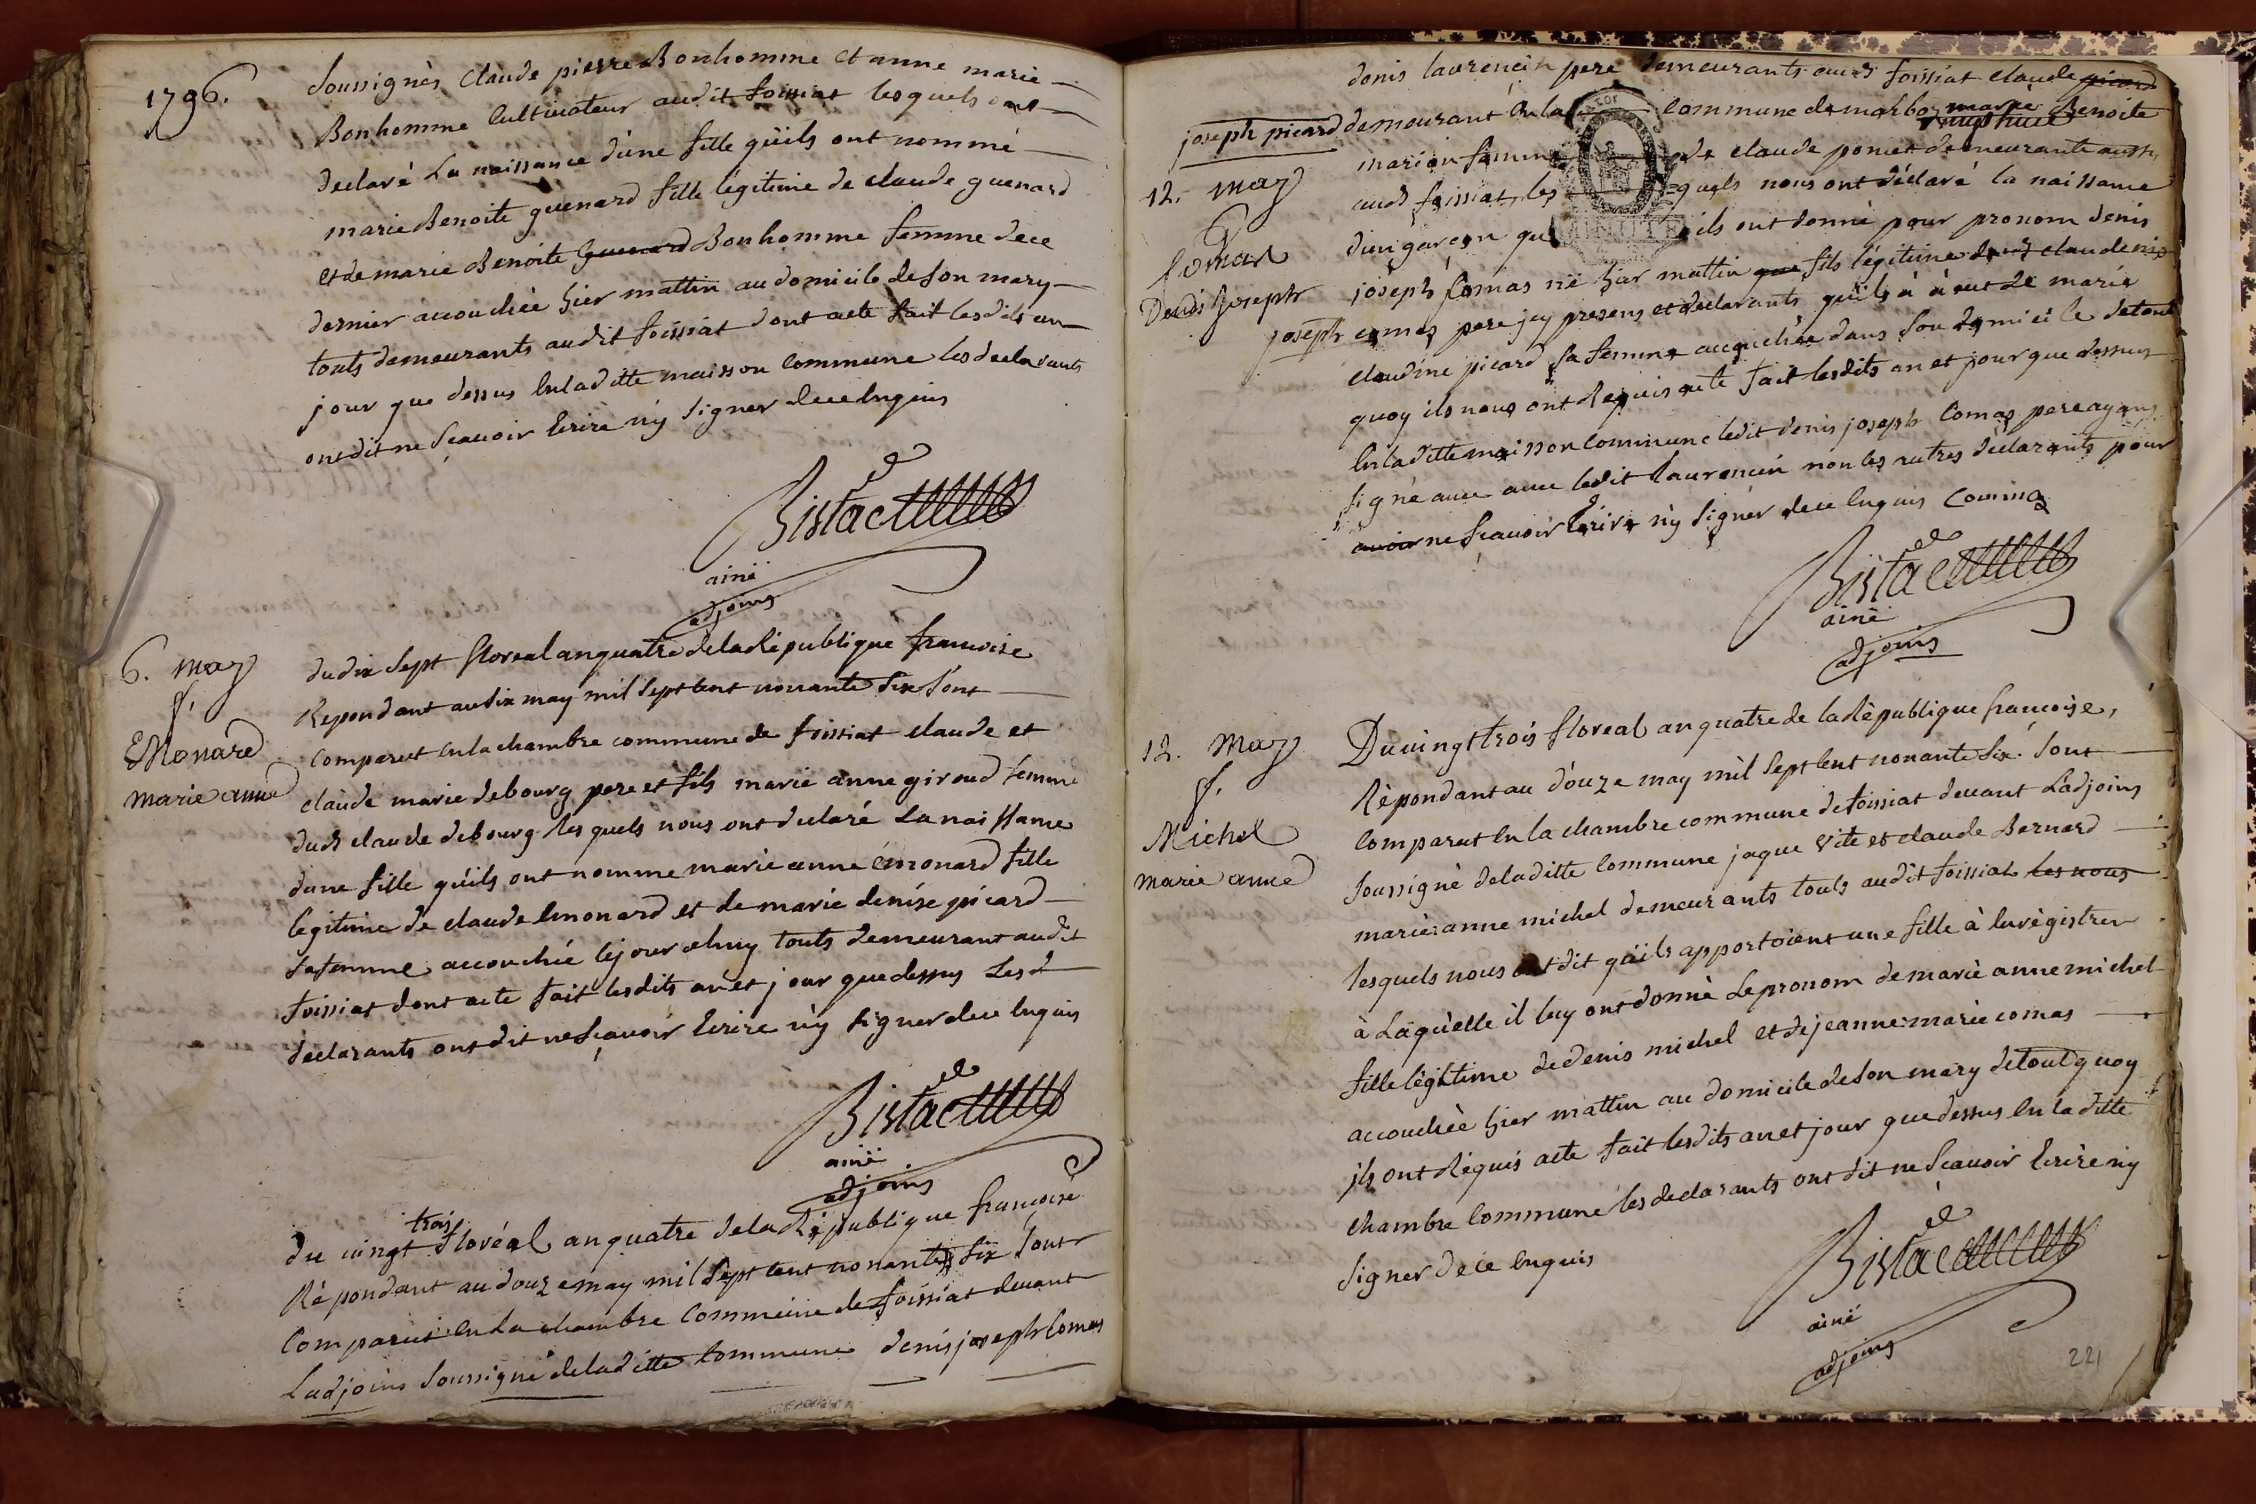 1796.
soussignés claude pierre Bonhomme et anne marie
Bonhomme Cultivateur audit foissiat lesquels ont
declaré La naissance d'une fille qu'ils ont nommé
marie Benoite guenard fille légitime de claude guenard
et de marie Benoite guenard Bonhomme femme de ce
dernier accouchée hier mattin au domicile de son mary
touts demeurants audit foissiat dont acte fait lesdits an
jour que dessus En la ditte maison commune les declarants
ont dit ne scauoir Ecrire n'y signer de ce Enquis
Bistac
ainé
adjoins
6. may
f.
EMonard
marie anne
du dix sept floreal an quatre de la République francoise
Repondant au six may mil sept cent nonante six sont
comparut en la chambre commune de foissiat claude et
claude marie debourg pere et fils marie anne giroud femme
dudt claude debourg lesquels nous ont declaré La naissance
dune fille qu'ils ont nomme marie anne émonard fille
legitime de claude Emonard et de marie denise picard
sa femme accouchée cejourdhuy touts demeurant audit
foissiat dont acte fait lesdits an et jour que dessus Lesd
declarants ont dit ne scauoir Ecrire n'y signer de ce Enquis
Bistac
ainé
adjoins
trois
du uingt floréal an quatre de la République francoise
Répondant au douze may mil sept cent nonante six sont
Comparut En La chambre Commune de foissiat deuant
L'adjoins soussigné de la ditte Commune denis joseph Comas
denis laurencin pere demeurants audt foissiat claude picard
joseph picard demeurant En la commune de marboz marie Benoite
marion femme de claude poncet demeurante
audt foissiat, lesquels nous ont déclaré la naissance
12. may
Comas
Denis joseph
d'un garçon qu'ils ont donné pour pronom denis
joseph Comas né hier mattin que fils légitime claude
joseph comas pere jcy presens et declarants qu'il à à eut de marie
claudine picard sa femme accouchée dans son domicile de tout
quoy ils nous ont Requis acte fait lesdits an et jour que dessus
En la ditte maison commune ledit denis joseph Comas pere ayant
signé auec auec ledit laurencin non les autres déclarants pour
auoir ne scauoir Ecrire n'y signer de ce Enquis Comma
Bistac
ainé
adjoins
12. May
f.
Michel
marie anne
Du uingt trois floreal an quatre de la République francoise,
Répondant au douze may mil sept cent nonante six sont
Comparut En la chambre commune de foissiat deuant L'adjoins
soussigné de la ditte Commune jaque Vite et claude Bernard
marie anne michel demeurants touts audit foissiat les nous
lesquels nous ont dit qu'ils apportoient une fille à Enrégistrer
à Laquelle il luy ont donné Le pronom de marie anne michel
fille légitime de denis michel et de jeanne marie comas
accouchée hier mattin au domicile de son mary de tout quoy
jls ont Réquis acte fait lesdits an et jour que dessus En la ditte
chambre Commune les declarants ont dit ne scauoir Ecrire n'y
signer de ce Enquis
Bistac
ainé
adjoins
221